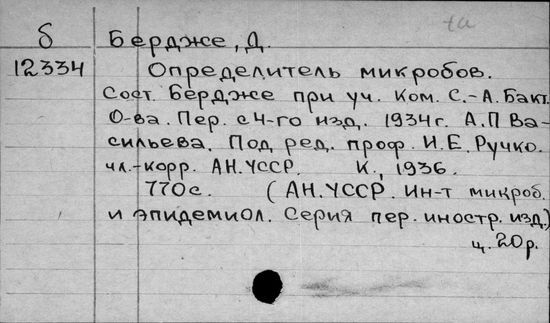 б Берджe, Д.
12334 Определитель микробов.
Сост. Берджe при уч. Ком. С.-А. Бакт.
О-ва. Пер. с 4-го изд. 1934 г. А.П Ва-
сильева. Под ред. проф. И.Е. Ручко.
чл.-корр. АН.УССР. К., 1936.
770с. (АН.УССР. Ин-т микроб.
и эпидемиол. Серия пер. иностр. изд.)
ц. 20р.